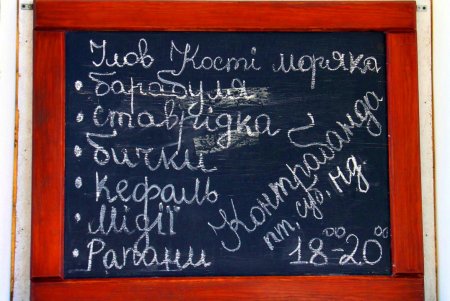 Улов Кості моряка
• барабуля
• ставридка
• бички
• кефаль
• мідії
• Рапани
Контрабанда
пт, суб, нд
18⁰⁰-20⁰⁰